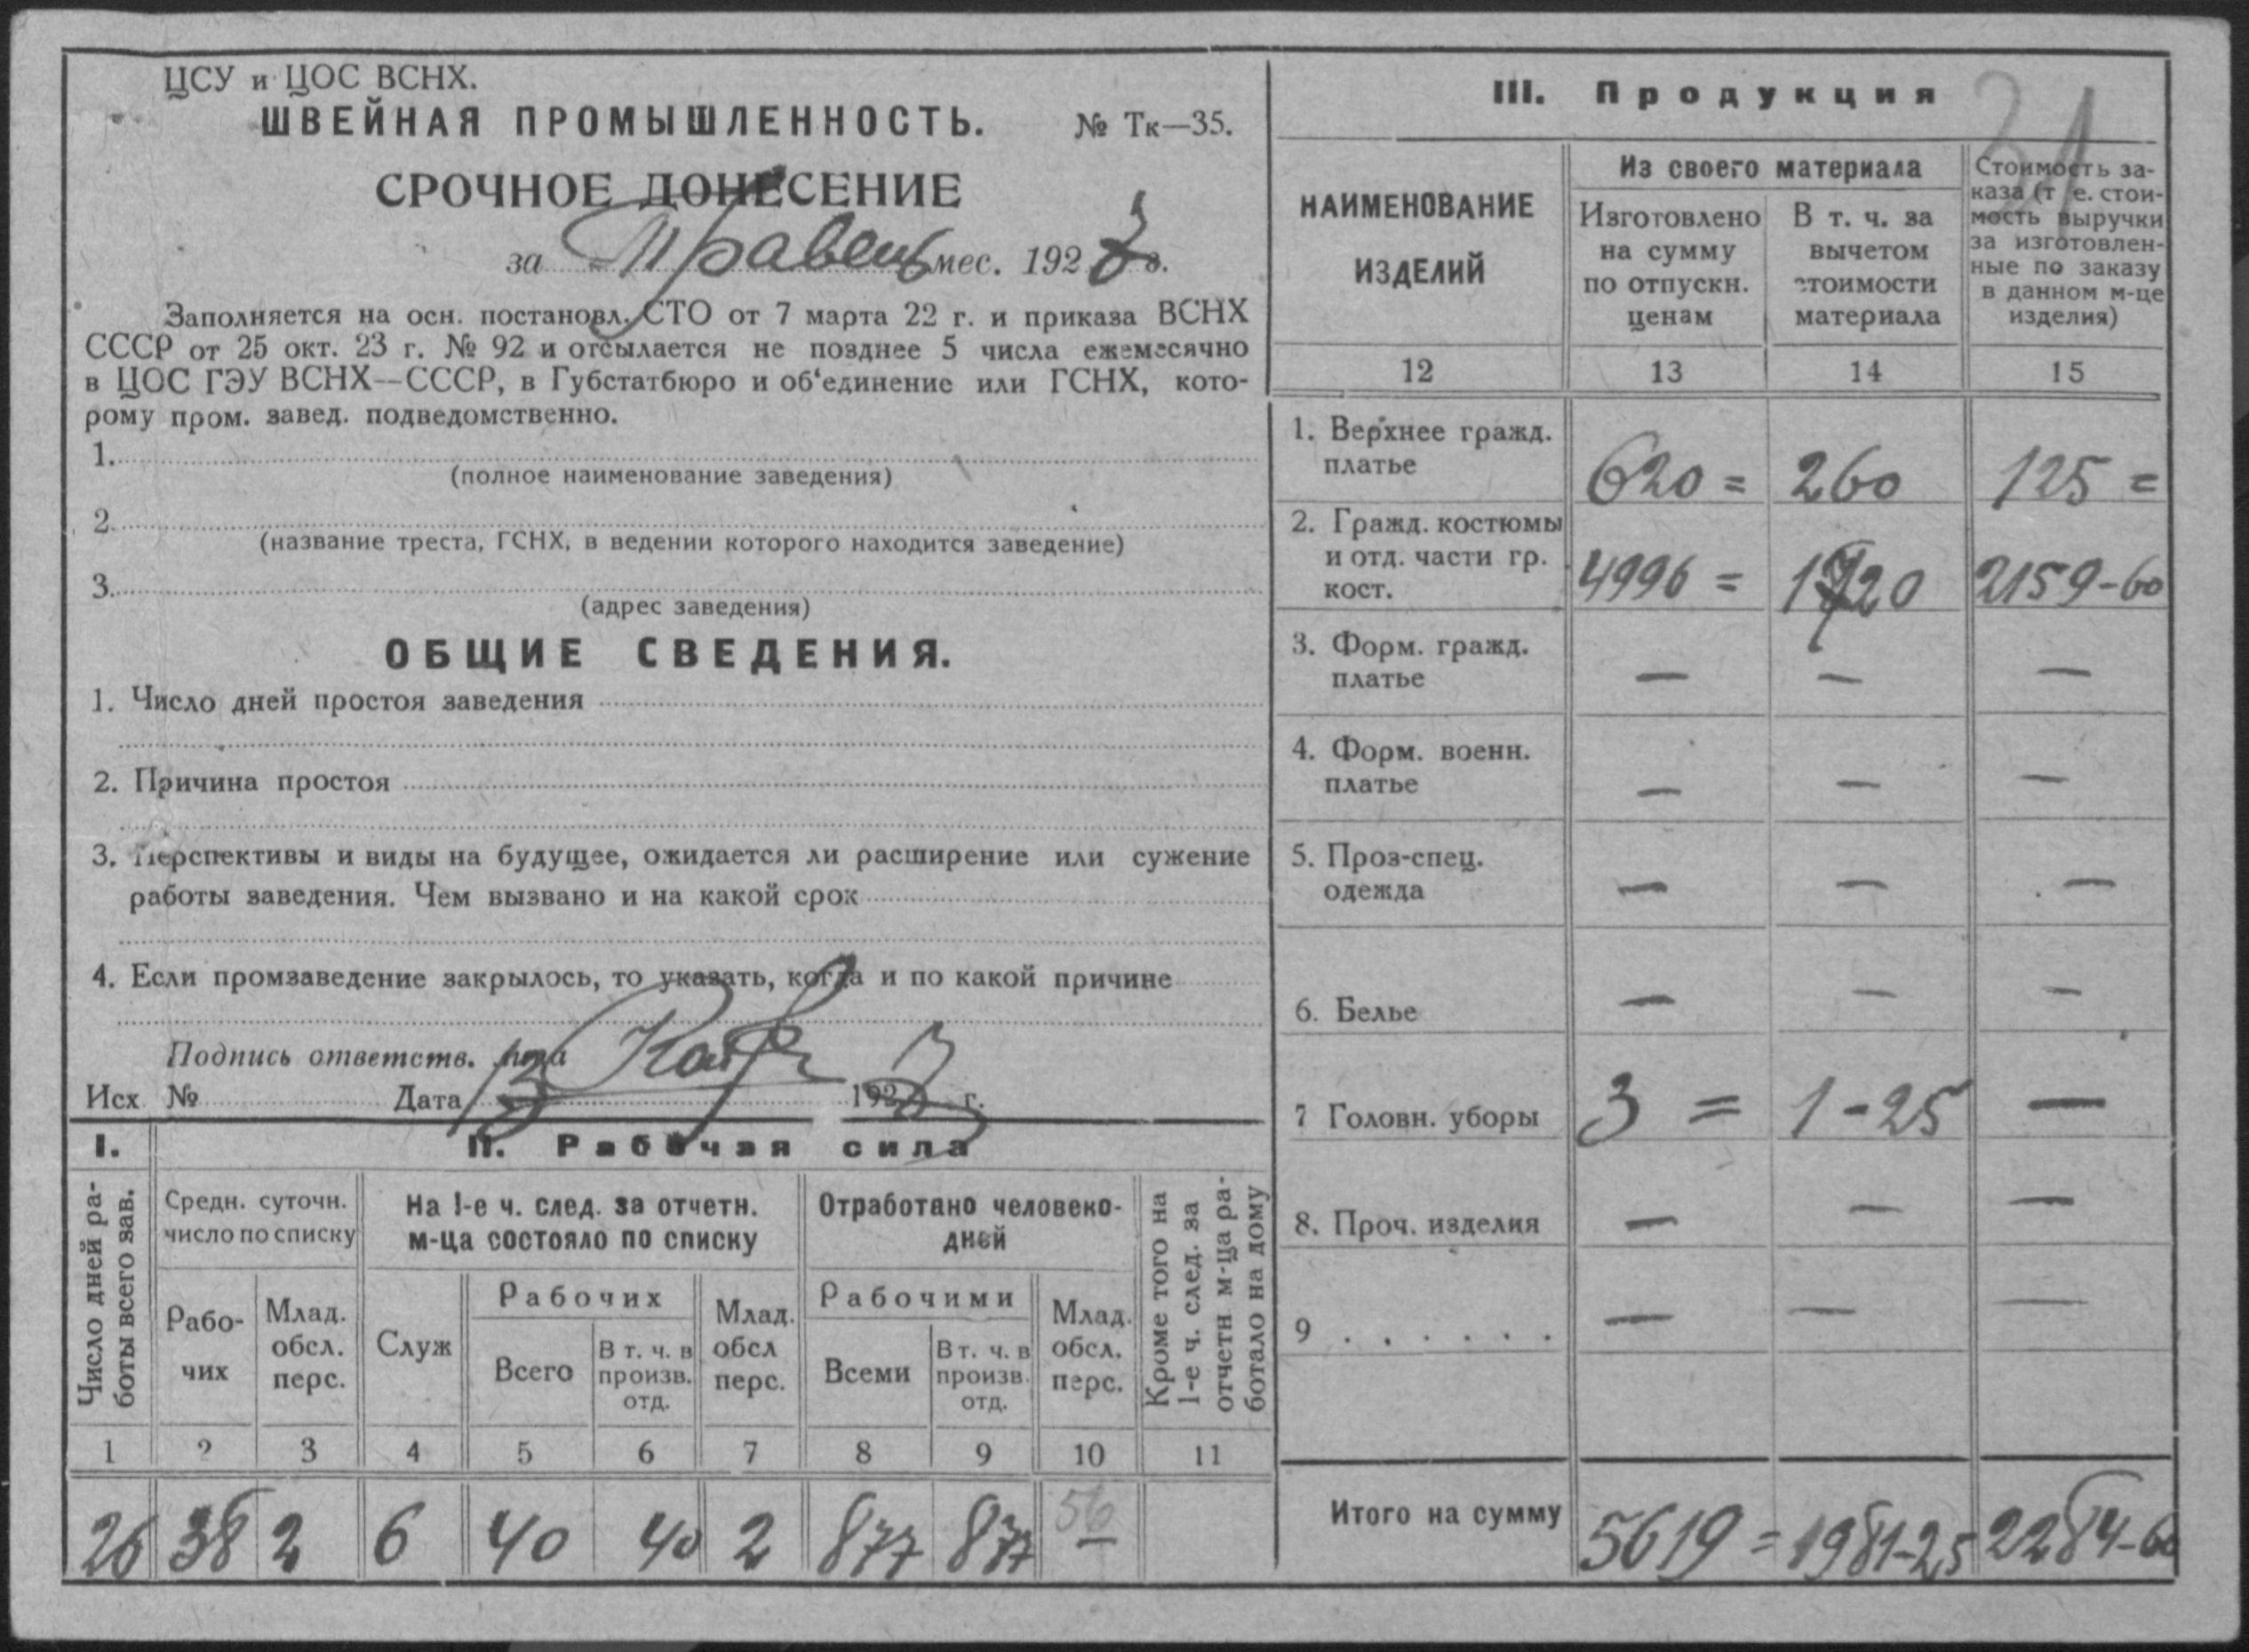 ЦСУ и ЦОС ВСНХ.
ШВЕЙНАЯ ПРОМЫШЛЕННОСТЬ. № Тк—35.
СРОЧНОЕ ДОНЕСЕНИЕ
за Травень мес. 192 г.
Заполняется на осн. постановл. СТО от 7 марта 22 г. и приказа ВСНХ
СССР от 25 окт. 23 г. № 92 и отсылается не позднее 5 числа ежемесячно
в ЦОС ГЭУ ВСНХ—СССР, в Губстатбюро и об‘единение или ГСНХ, кото-
рому пром. завед. подведомственно.
1.
(полное наименование заведения)
2.
(название треста, ГСНХ, в ведении которого находится заведение)
3.
(адрес заведения)
ОБЩИЕ СВЕДЕНИЯ.
1. Число дней простоя заведения
2. Причина простоя
3. Перспективы и виды на будущее, ожидается ли расширение или сужение
работы заведения. Чем вызвано и на какой срок
4. Если промзаведение закрылось, то указать, когда и по какой причине
Подпись ответств. лица
Исх. № Дата 192 г.
I. II. Рабочая сила
Число дней ра-
боты всего зав.
Средн. суточн.
число по списку
Рабо-
чих
Млад.
обсл.
перс.
На 1-е ч. след. за отчетн.
м-ца состояло по списку
Служ
Рабочих
Всего
В т. ч. в
произв.
отд.
Млад.
обсл
перс.
Отработано человеко-
дней
Рабочими
Всеми
В т. ч. в
произв.
отд.
Млад.
обсл.
перс.
Кроме того на
1-е ч. след. за
отчетн м-ца ра-
ботало на дому
1 2 3 4 5 6 7 8 9 10 11
26 38 2 6 40 40 2 877 877 56
III. Продукция
31
НАИМЕНОВАНИЕ
ИЗДЕЛИЙ
Из своего материала
Изготовлено
на сумму
по отпускн.
ценам
В т. ч. за
вычетом
стоимости
материала
Стоимость за-
каза (т е. стои-
мость выручки
за изготовлен-
ные по заказу
в данном м-це
изделия)
12 13 14 15
1. Верхнее гражд.
платье 620 = 260 125 =
2. Гражд. костюмы
и отд. части гр.
кост. 4996 = 1720 2159-60
3. Форм. гражд.
платье — — —
4. Форм. военн.
платье — — —
5. Проз-спец.
одежда — — —
6. Белье — — —
7 Головн. уборы 3 = 1-25 —
8. Проч. изделия — — —
9 . . . . . . — — —
Итого на сумму 5619 = 1981-25 2284-60